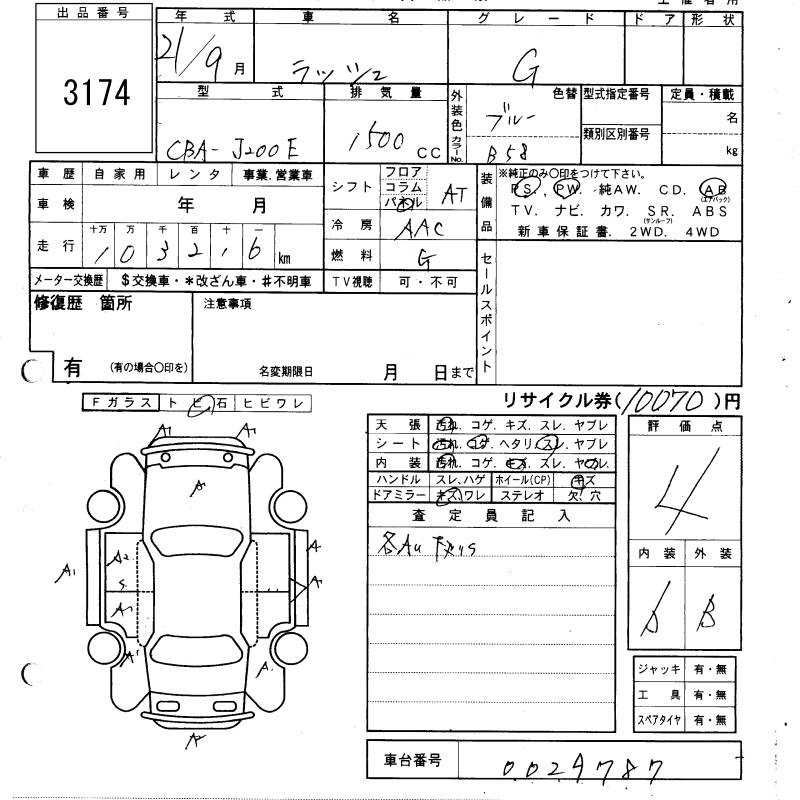 出品番号
3174
年式 車名 グレード ドア 形状
21/9月 ラッシュ G
型式 排気量 外装色 色替 型式指定番号 定員・積載
CBA-J200E 1500cc ブルー 名
カラーNo. B58 類別区別番号 kg
車歴 自家用 レンタ 事業.営業車
車検 年 月
走行 十万 万 千 百 十 一
1 0 3 2 1 6 km
メーター交換歴 $交換車・*改ざん車・#不明車
シフト フロア コラム パネル AT
冷房 AAC
燃料 G
TV視聴 可・不可
装備品 ※純正のみ〇印をつけて下さい。
PS. PW. 純AW. CD. AB(エアバッグ)
TV. ナビ. カワ. SR.(サンルーフ) ABS
新車保証書. 2WD. 4WD
セールスポイント
修復歴 箇所 注意事項
有 (有の場合〇印を) 名変期限日 月 日まで
リサイクル券(10070)円
Fガラス トビ石 ヒビワレ
天張 汚れ. コゲ. キズ. スレ. ヤブレ
シート 汚れ. コゲ. ヘタリ. スレ. ヤブレ
内装 汚れ. コゲ. キズ. スレ. ヤブレ
ハンドル スレ、ハゲ ホイール(CP) キズ
ドアミラー キズ.ワレ ステレオ 欠.穴
査定員記入
評価点
4
内装 外装
B
A1 A1
A
A2 A
A1 S A
A
A1 A
A
ジャッキ 有・無
工具 有・無
スペアタイヤ 有・無
車台番号 0029787